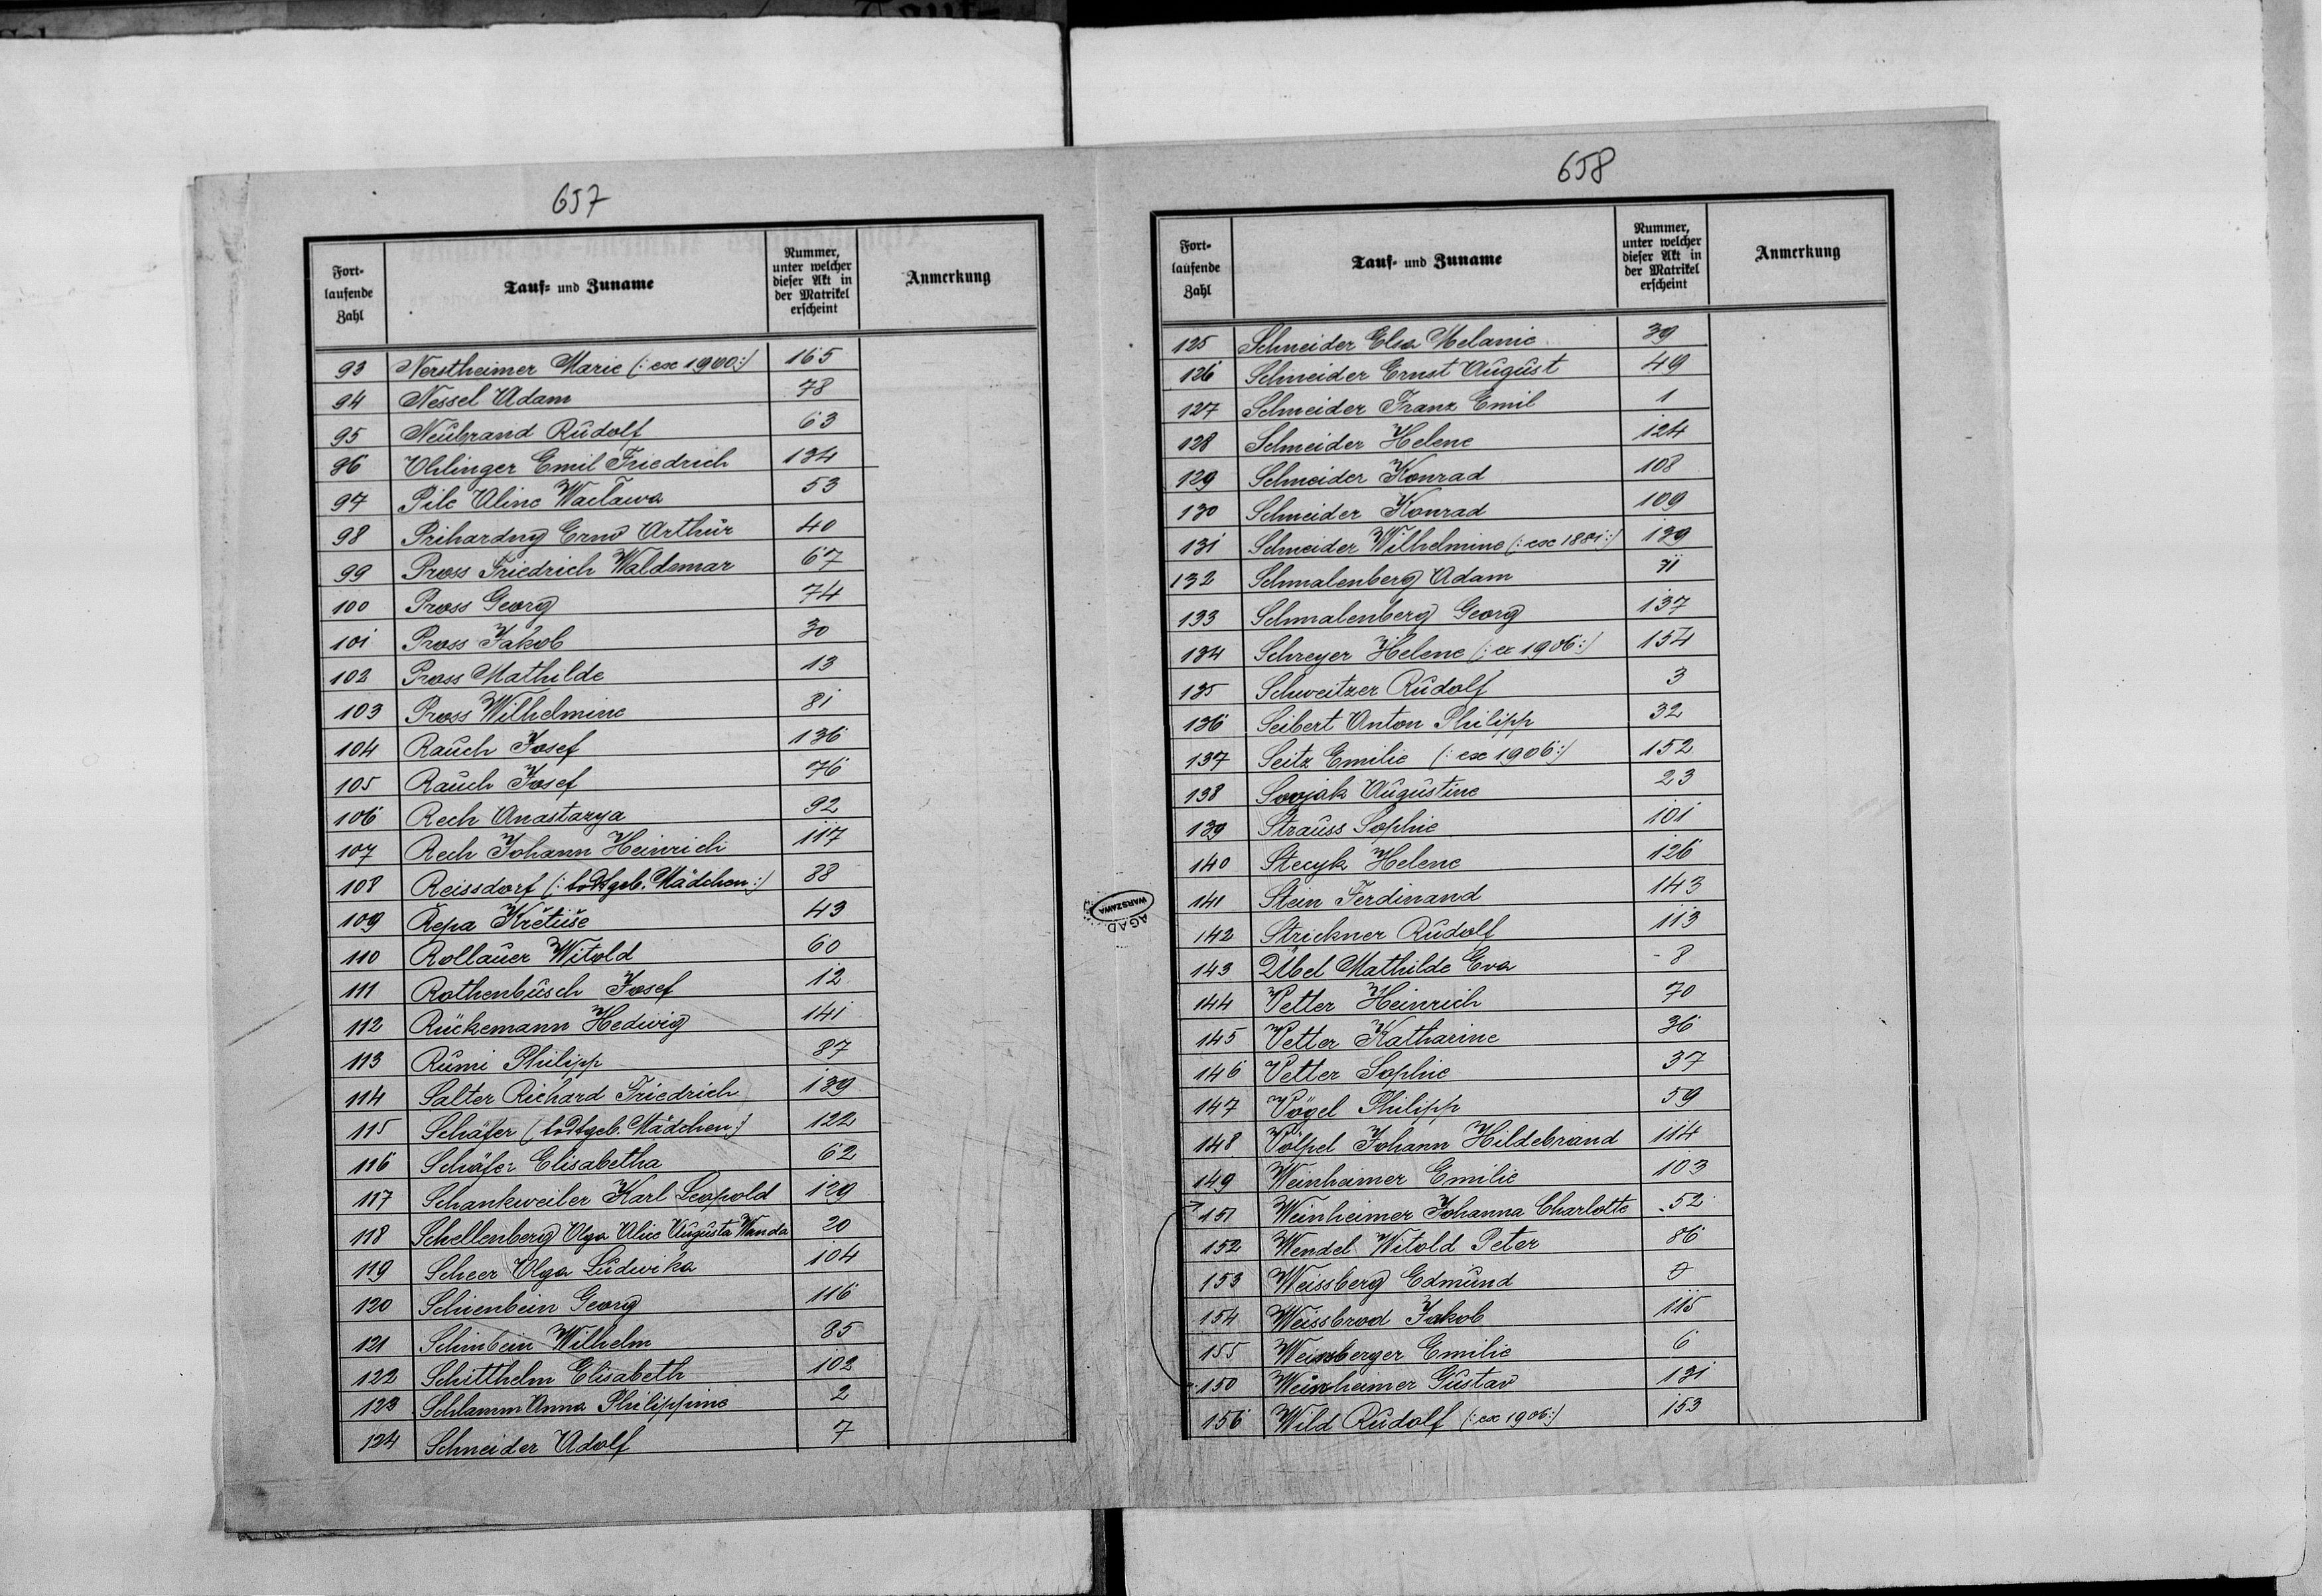 657
Fort-
laufende
Zahl
Tauf- und Zuname
Nummer,
unter welcher
dieser Akt in
der Matrikel
erscheint
Anmerkung
93 Nerstheimer Marie (: ex 1900:) 165
94 Nessel Adam 78
95 Neubrand Rudolf 63
96 Ohlinger Emil Friedrich 134
97 Pilc Aline Wacława 53
98 Prihardny Erno Arthur 40
99 Pross Friedrich Waldemar 67
100 Pross Georg 74
101 Pross Jakob 30
102 Pross Mathilde 13
103 Pross Wilhelmine 81
104 Rauch Josef 136
105 Rauch Josef 76
106 Rech Anastazya 92
107 Rech Johann Heinrich 117
108 Reissdorf (: todtgeb. Mädchen :) 88
109 Řepa Křetuše 43
110 Rollauer Witold 60
111 Rothenbusch Josef 12
112 Rückemann Hedwig 141
113 Rumi Philipp 87
114 Salter Richard Friedrich 139
115 Schäfer (todtgeb. Mädchen :) 122
116 Schäfer Elisabetha 62
117 Schankweiler Karl Leopold 129
118 Schellenberg Olga Alice Augusta Wanda 20
119 Scheer Olga Ludwika 104
120 Schienbein Georg 116
121 Schinbein Wilhelm 85
122 Schitthelm Elisabeth 102
123 Schlamm Anna Philippine 2
124 Schneider Adolf 7
658
Fort-
laufende
Zahl
Tauf- und Zuname
Nummer,
unter welcher
dieser Akt in
der Matrikel
erscheint
Anmerkung
125 Schneider Elsa Melanie 39
126 Schneider Ernst August 49
127 Schneider Franz Emil 1
128 Schneider Helene 124
129 Schneider Konrad 108
130 Schneider Konrad 109
131 Schneider Wilhelmine (: ex 1881 :) 139
132 Schmalenberg Adam 71
133 Schmalenberg Georg 137
134 Schreyer Helene (: ex 1906 :) 154
135 Schweitzer Rudolf 3
136 Seibert Anton Philipp 32
137 Seitz Emilie (: ex 1906 :) 152
138 Augustine 23
139 Strauss Sophie 101
140 Stecyk Helene 126
141 Stein Ferdinand 143
142 Strickner Rudolf 113
143 Übel Mathilde Eva 8
144 Vetter Heinrich 70
145 Vetter Katharine 36
146 Vetter Sophie 37
147 Vögel Philipp 59
148 Völpel Johann Hildebrand 114
149 Weinheimer Emilie 103
151 Weinheimer Johanna Charlotte 52
152 Wendel Witold Peter 86
153 Weissberg Edmund
154 Weissbrod Jakob 115
155 Weinberger Emilie 6
150 Weinheimer Gustav 131
156 Wild Rudolf (: ex 1906 :) 153
AGAD
WARSZAWA